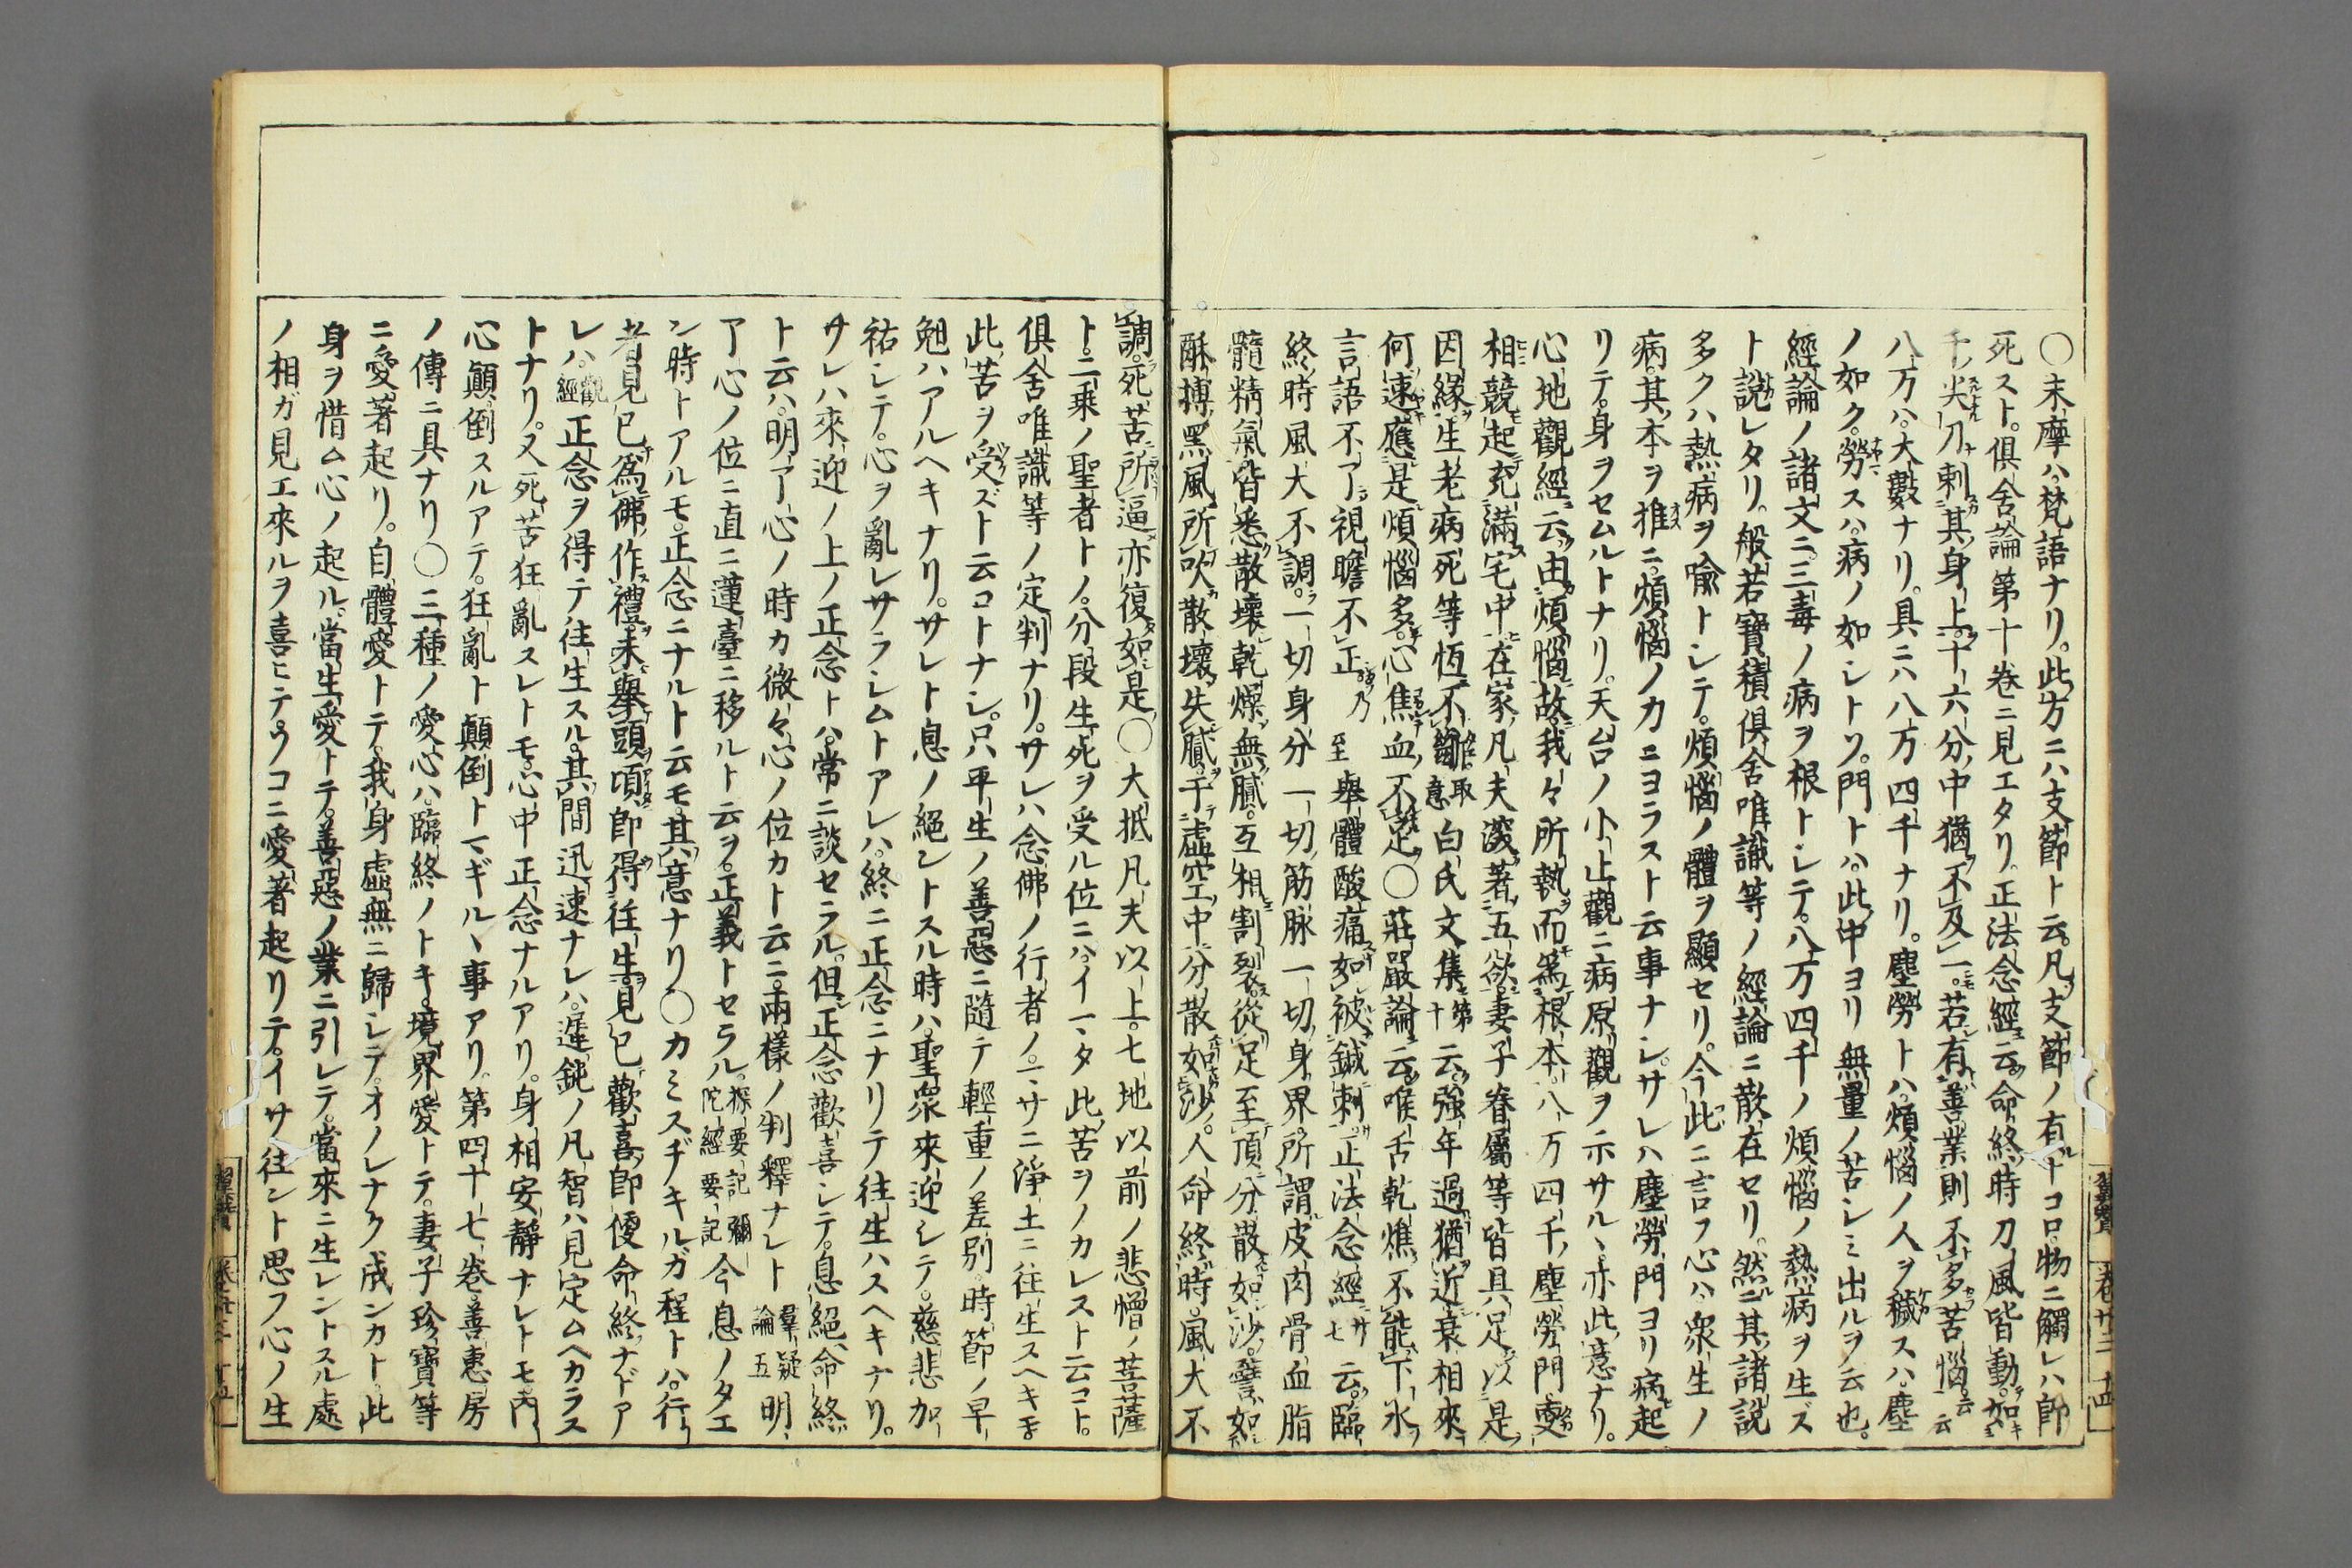 ○末摩ハ梵語ナリ。此方ニハ支節ト云。凡支節ノ有トコロ。物ニ觸レハ即
死スト。倶舍論第十卷ニ見エタリ。正法念經云。命終時刀風皆動。如
千尖刀刺其身上。十六分中猶不及一。若有善業則不多苦惱。云云
八万ハ大數ナリ。具ニハ八万四千ナリ。塵勞トハ。煩惱ノ人ヲ穢スハ。塵
ノ如ク。勞スハ。病ノ如シトソ。門トハ。此中ヨリ無量ノ苦シミ出ルヲ云也。
經論ノ諸文ニ。三毒ノ病ヲ根トシテ。八万四千ノ煩惱ノ熱病ヲ生ズ
ト説レタリ。般若寶積倶舍唯識等ノ經論ニ散在セリ。然ニ其諸説
多クハ熱病ヲ喩トシテ。煩惱ノ體ヲ顯セリ。今此ニ言フ心ハ衆生ノ
病。其本ヲ推ニ。煩惱ノ力ニヨラスト云事ナシ。サレハ塵勞門ヨリ病起
リテ。身ヲセムルトナリ。天台ノ小止觀ニ病原觀ヲ示サルヽ亦此意ナリ。
心地觀經云。由煩惱故。我々所執而爲根本。八万四千塵勞門更
相競起充滿宅中。在家凡夫深著五欲。妻子眷屬等皆具足。以是
因緣。生老病死等恆不斷。取意 白氏文集第十云。強年過猶近衰相來
何速。應是煩惱多。心焦血不足。○莊嚴論云。喉舌乾燋。不能下水
言語不了視瞻不正。乃至擧體酸痛如被鍼刺。正法念經云。臨
終時風大不調。一切身分一切筋脉一切身界。所謂皮肉骨血脂
髓精氣皆悉散壞乾燥無膩。互相割裂。從足至頂分散如沙。譬如
酥摶黑風所吹散壞失膩。于虚空中分散如沙。人命終時。風大不
調。死苦所逼亦復如是。○大抵凡夫以上。七地以前ノ悲憎ノ菩薩
ト。二乘ノ聖者トノ。分段生死ヲ受ル位ニハ。イマタ此苦ヲノカレスト云コト。
倶舍唯識等ノ定判ナリ。サレハ念佛ノ行者ノ。マサニ淨土ニ往生スヘキモ。
此苦ヲ受ズト云コトナシ。只平生ノ善惡ニ隨テ輕重ノ差別。時節ノ早
勉ハアルヘキナリ。サレト息ノ絕ントスル時ハ。聖衆來迎シテ。慈悲加
祐シテ。心ヲ亂レサラシムトアレハ。終ニ正念ニナリテ往生ハスヘキナリ。
サレハ來迎ノ上ノ正念トハ。常ニ談セラル。但正念歡喜シテ。息絕命終
ト云ハ。明了心ノ時カ微々心ノ位カト云ニ。兩樣ノ判釋ナレト群疑論五明
了心ノ位ニ直ニ蓮臺ニ移ルト云ヲ。正義トセラル。探要記彌陀經要記今息ノタエ
ン時トアルモ。正念ニナルト云モ。其意ナリ○カミスヂキルガ程トハ。行
者見已爲佛作禮。未擧頭頃即得往生。見已歡喜即便命終ナドア
レハ。觀經正念ヲ得テ往生スル。其間迅速ナレハ。遲鈍ノ凡智ハ見定ムヘカラス
トナリ。又死苦狂亂スレトモ。心中正念ナルアリ。身相安靜ナレトモ。内
心顛倒スルアテ。狂亂ト顛倒トマギルヽ事アリ。第四十七卷。善惠房
ノ傳ニ具ナリ○三種ノ愛心ハ。臨終ノトキ。境界愛トテ。妻子珍寶等
ニ愛著起リ。自體愛トテ。我身虚無ニ歸シテ。オノレナク成ンカト。此
身ヲ惜ム心ノ起ル。當生愛トテ。善惡ノ業ニ引レテ。當來ニ生レントスル處
ノ相ガ見エ來ルヲ喜ヒテ。ソコニ愛著起リテ。イサ往ント思フ心ノ生